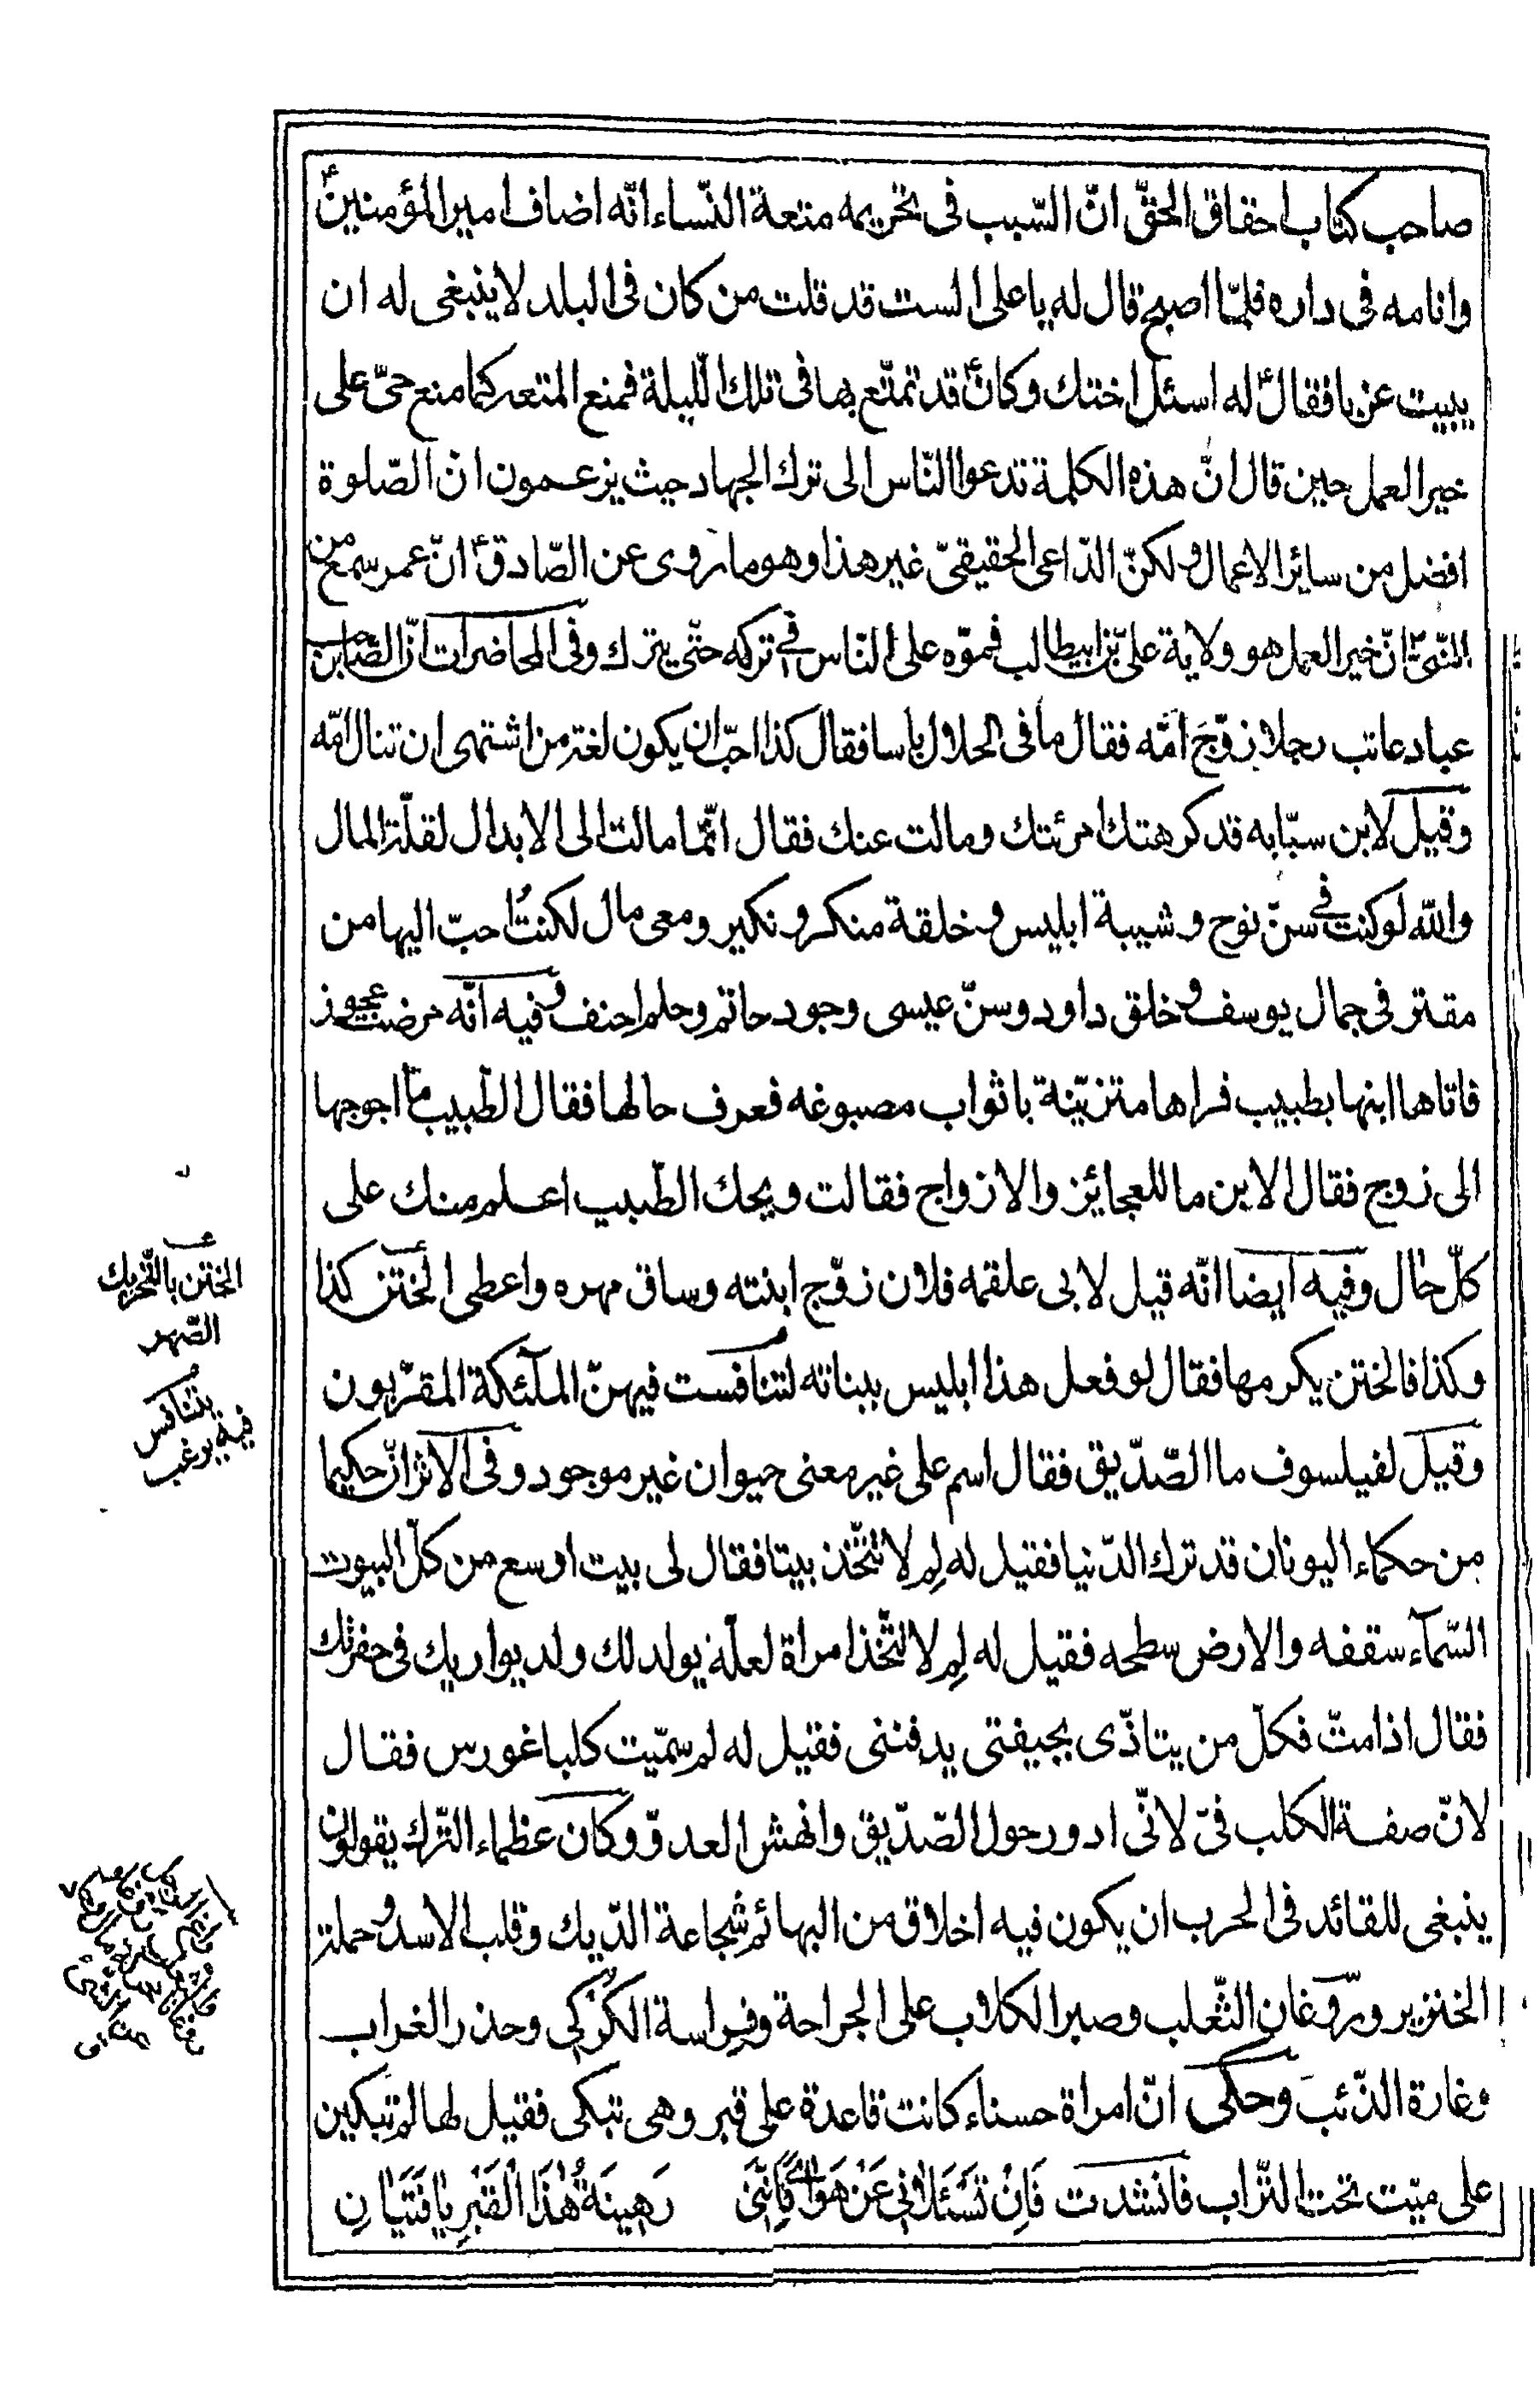 صاحب كتاب احقاق الحقّ انّ السّبب فى تحريمه متعة النّساء انّه اضاف امير المؤمنينؑ
وانامه فى داره فلمّا اصبح قال له يا على الست قد قلت من كان فى البلد لا ينبغى له ان
يبيت عزبا فقالؑ له اسئل اختك وكانؑ قد تمتّع بها فى تلك اللّيلة فمنع المتعه كما منع حىّ على
خير العمل حين قال انّ هذه الكلمة تدعوا النّاس الى ترك الجهاد حيث يزعمون ان الصّلوة
افضل من سائر الاعمال ولكنّ الدّاعى الحقيقىّ غير هذا وهو ما روى عن الصّادقؑ انّ عمر سمع من
النّبىّ انّ خير العمل هو ولاية علىّ بن ابيطالب فموّه على النّاس فى تركه حتّى يترك وفى المحاضرات انّ الصّاحب بن
عباد عاتب رجلا زوّجَ امّه فقال ما فى الحلال باسا فقال كذا احبّ ان يكون لغة من اشتهى ان تنال امّه
وقيل لابن سبّابه قد كرهتك امرئتك ومالت عنك فقال انّما مالت الى الابدال لقلّة المال
واللّه لو كنت فى سنّ نوح وشيبة ابليس وخلقة منكر ونكير ومعى مال لكنتُ احبّ اليها من
مقتر فى جمال يوسف وخلق داود وسنّ عيسى وجود حاتم وحلم احنف وفيه انّه مرضت عجوز
فاتاها ابنها بطبيب فراها متزيّنة باثواب مصبوغه فعرف حالها فقال الطّبيب ما احوجها
الى زوج فقال الابن ما للعجائز والازواج فقالت ويحك الطّبيب اعلم منك على
كلّ حال وفيه ايضا انّه قيل لابى علقمه فلان زوّج ابنته وساق مهره واعطى الختن كذا
وكذا فالختن يكرمها فقال لو فعل هذا ابليس ببناته لتنافست فيهنّ الملٓئكة المقرّبون
وقيل لفيلسوف ما الصّدّيق فقال اسم على غير معنى حيوان غير موجود وفى الاثر انّ حكيما
من حكماء اليونان قد ترك الدّنيا فقيل له لِم لا تتّخذ بيتا فقال لى بيت اوسع من كلّ البيوت
السّمآء سقفه والارض سطحه فقيل له لِم لا تتّخذ امراة لعلّه يولد لك ولد يواريك فى حفرتك
فقال اذا متّ فكلّ من يتاذّى بجيفتى يدفننى فقيل له لم سمّيت كلبا غورس فقال
لانّ صفة الكلب فىّ لانّى ادور حول الصّدّيق وانهش العدوّ وكان عظماء التّرك يقولون
ينبغى للقائد فى الحرب ان يكون فيه اخلاق من البهائم شجاعة الدّيك وقلب الاسد وحملة
الخنزير وروّغان الثّعلب وصبر الكلاب على الجراحة وفِراسة الكُركى وحذر الغراب
وغارة الذّئب وحكى انّ امراة حسناء كانت قاعدة على قبر وهى تبكى فقيل لها لم تبكين
على ميّت تحت التّراب فانشدت فَاِنْ تَسْئَلانى عَنْ هَواىَ فَاِنَّنى رَهينَةُ هٰذَا الْقَبْرِ يا فَتَيانِ
الختن بالتّحريك
الصّهر
يتنافس
فيه يرغب